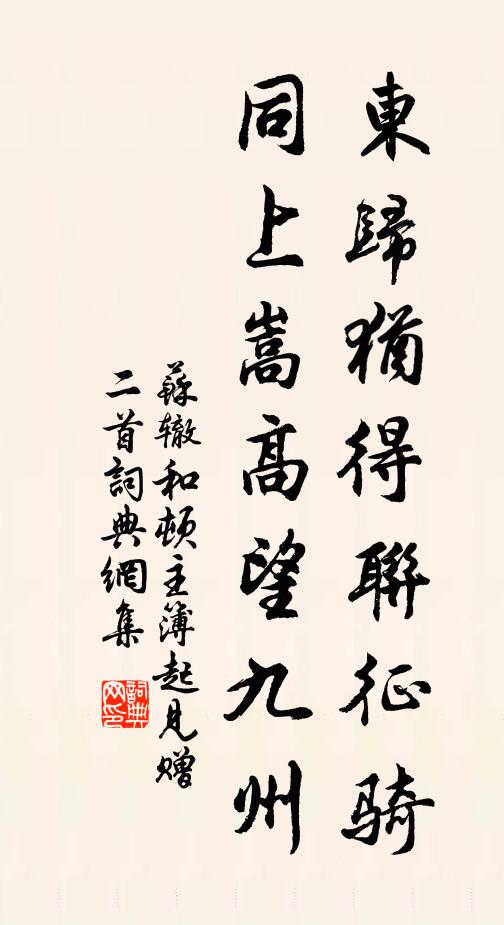 東歸猶得聯征騎
同上嵩高望九州
蘇辙和頓主簿起見赠
二首詞典網集
詞典网印